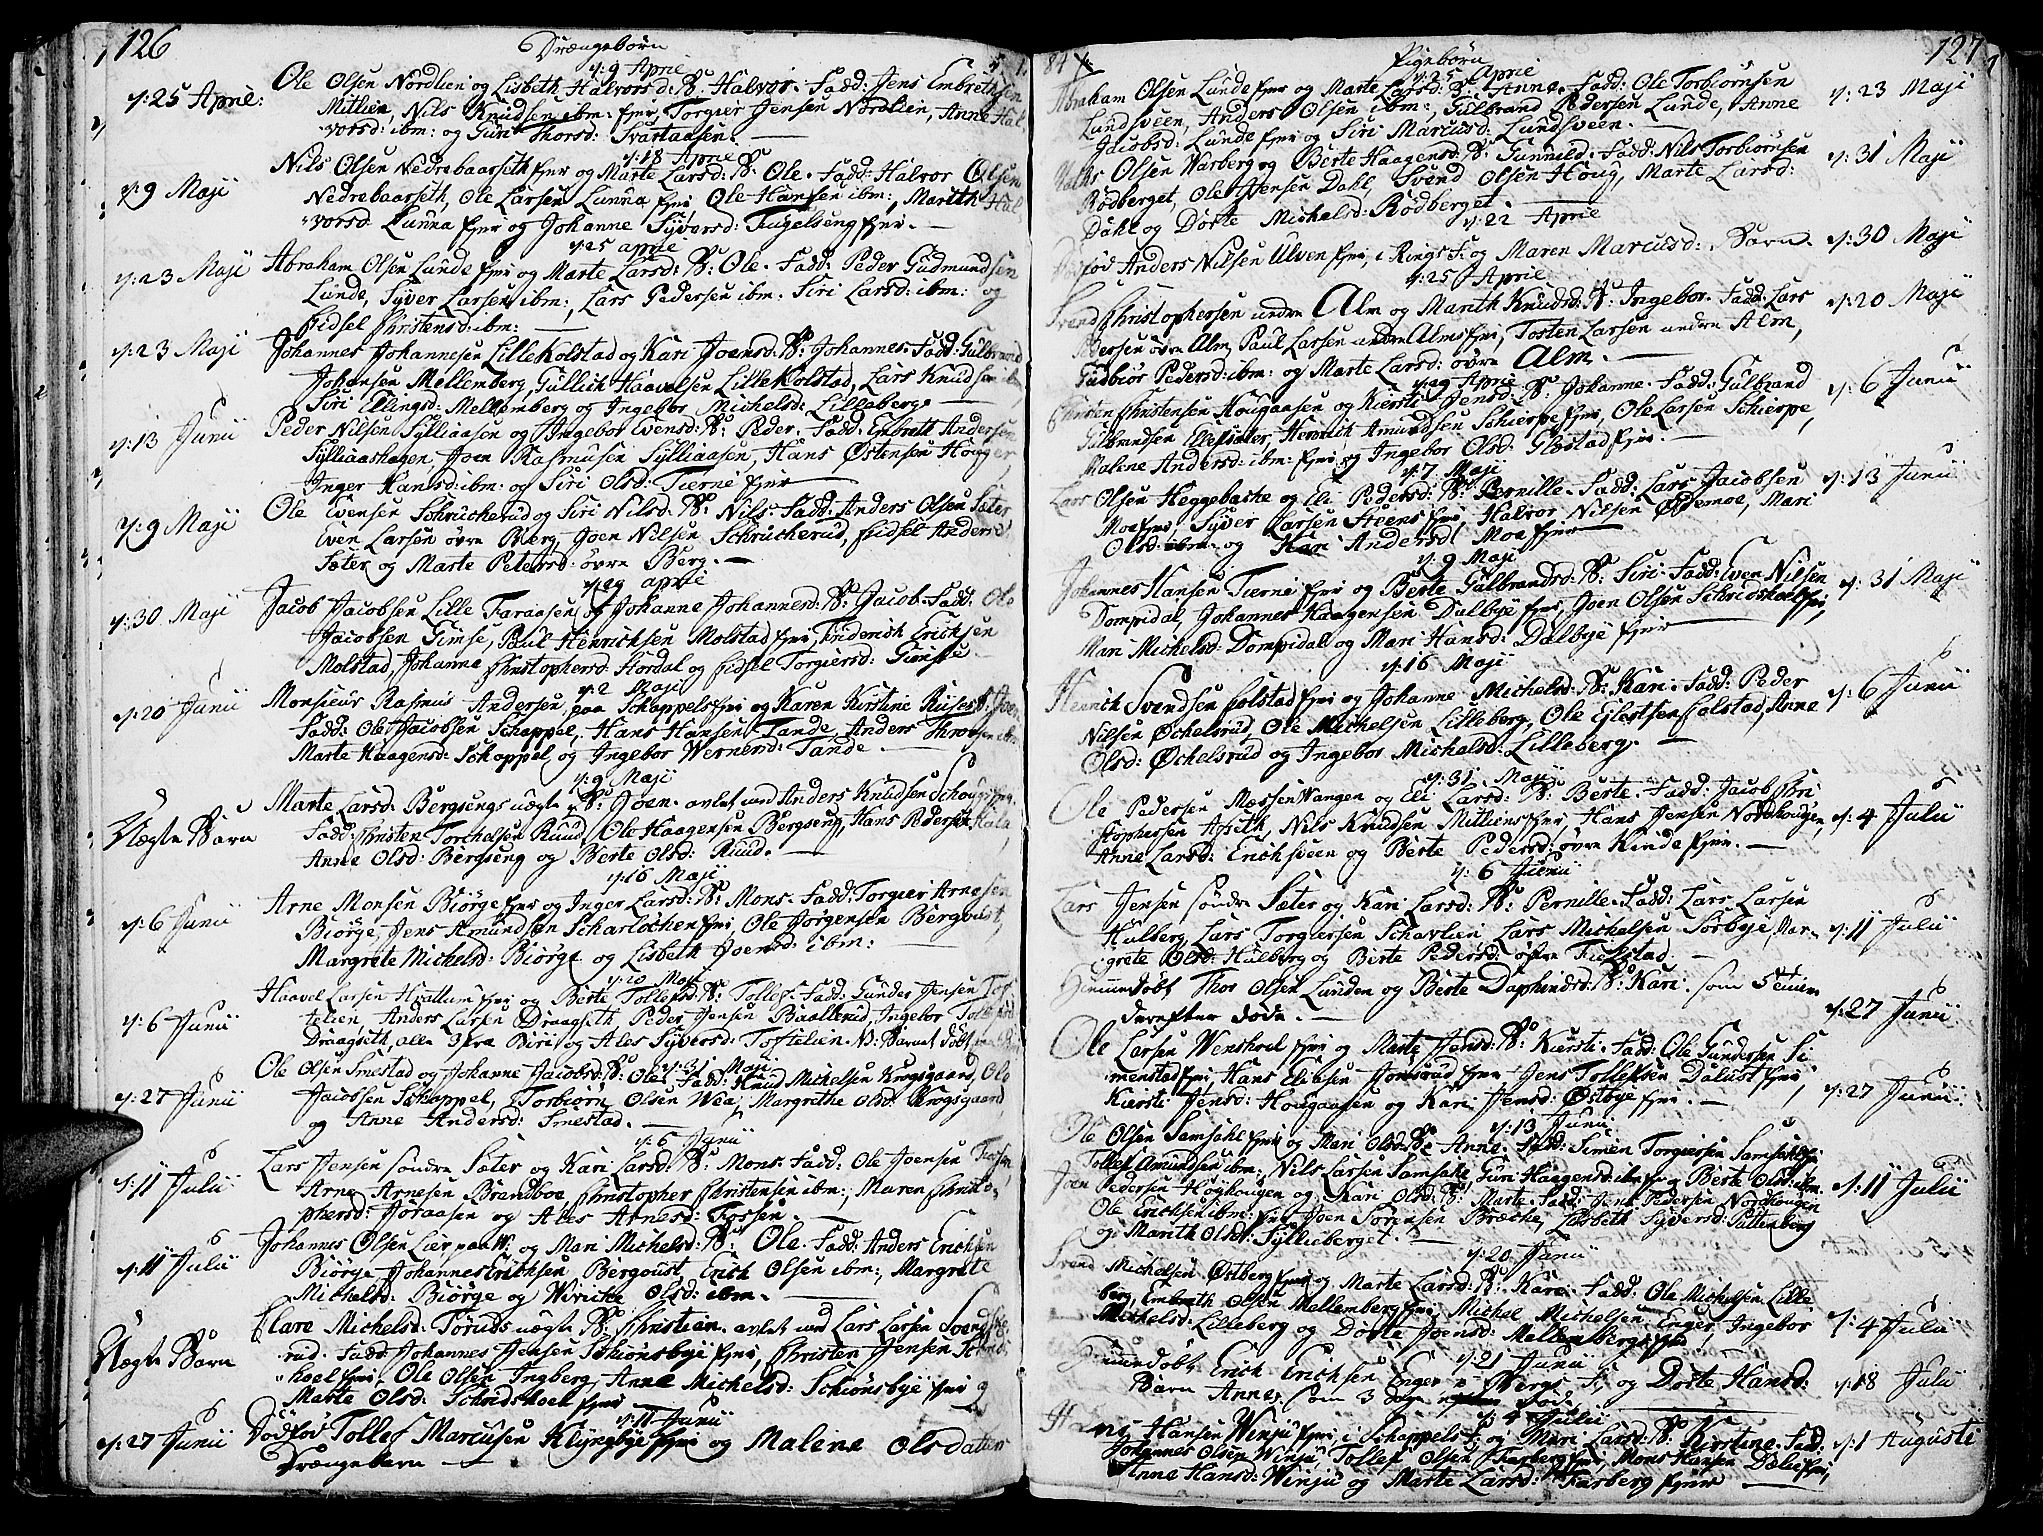 126
Drængebørn
d: 9 Aprie
d: 25 Aprie: Ole Olsen Nordlien og Lisbeth Halvorsd: B: Halvor. Fadd: Jens Embrethsen
Mitlien, Nils Knudsen ibm: Torgier Jensen Nordlien, Anne Hal
vorsd: ibm: og Guri Thorsd: Svartaasen.
d: 18 Aprie
d: 9 Maji Nils Olsen Nedrebaarseth og Marte Larsd: B: Ole. Fadd: Halvor Olsen
Nedrebaarseth, Ole Larsen Lunna Ole Hansen ibm:, Marith Hal
vorsd: Lunna og Johanne Syversd: Fugelseng
d: 25 aprie
d: 23 Maji Abraham Olsen Lunde og Marte Larsd: B: Ole. Fadd: Peder Gudmundsen
Lunde, Syver Larsen ibm:, Lars Pedersen ibm: Siri Larsd: ibm: og
Eidsel Christensd: ibm:
d: 23 Maji Johannes Johannesen Lille Kolstad og Kari Joensd: B: Johannes. Fadd: Gulbrand
Johansen Mellemberg, Gullich Haavelsen Lille Kolstad, Lars Knudsen
Siri Ellingsd: Mellemberg og Ingebor Michelsd: Lilleberg
d: 13 Junii Peder Nilsen Sylliaasen og Ingebor Evensd: B: Peder. Fadd: Embreth Andersen
Sylliaashagen, Joen Rasmusen Sylliaasen, Hans Østensen Houger,
Inger Hansd: ibm: og Siri Olsd: Tierne
d: 9 Maji Ole Evensen Schrucherud og Siri Nilsd: B: Nils. Fadd: Anders Olsen Sæter
Even Larsen øvre Berg, Joen Nilsen Schrucherud, Eidsel Andersd:
Sæter og Marte Petersd: øvre Berg.
d: 29 aprie
d: 30 Maji Jacob Jacobsen Lille Faraasen og Johanne Johannesd: B: Jacob. Fadd: Ole
Jacobsen Gimse, Paul Henrichsen Molstad Friderich Erichsen
Molstad, Johanna Christophersd: Hordal og Eidsel Torgiersd: Gimse
d: 2 Maji
d: 20 Junii Monsieur Rasmus Andersen, paa Schappels og Karen Kirstine Ruses B: Joen
Fadd: Ole Jacobsen Schappel, Hans Hansen Tande, Anders Thronsen ibm:
Marte Haagensd: Schappel og Ingebor Wernersd: Tande.
d: 9 Maji
Uægte Barn Marte Larsd: Bergsengs uægte B: Joen. avlet med Anders Knudsen
Fadd: Christen Torchelsen Ruud, Ole Haagensen Bergseng, Hans Pedersen
Anne Olsd: Bergseng og Berte Olsd: Ruud.
d: 16 Maji
d: 6 Junii Arne Monsen Biørge og Inger Larsd: B: Mons. Fadd: Torgier Arnesen
Biørge, Jens Amundsen Scharlochen Ole Jørgensen Bergoust,
Margrete Michelsd: Biørge og Lisbeth Joensd: ibm:
d: 20 Maji
d: 6 Junii Haavel Larsen Hvattum og Berte Tollefsd: B: Tollef. Fadd: Gunder Jensen Tof
telien, Anders Larsen Draagseth Peder Jensen Baalerud, Ingebor
Draagseth, alle 3 fra Biri og Ales Syversd: Toftelien. N: Barnet døbt
d: 31 Maji
d: 27 Junii Ole Olsen Smestad og Johanne Jacobsd: B: Ole Fadd: Knud Michelsen Krogsgaard, Ole
Jacobsen Schappel, Torbiørn Olsen Wea, Margrethe Olsd: Krogsgaard
og Anne Andersd: Smestad.
d: 6 Junii
d: 11 Julii Lars Jensen søndre Sæter og Kari Larsd: B: Mons. Fadd: Ole Joensen
Arne Arnesen Brandboe Christopher Christensen ibm:, Maren Christo
phersd: Joraasen og Ales Arnesd: Fossen.
d: 11 Julii Johannes Olsen Lier paa W. og Mari Michelsd: B: Ole. Fadd: Anders Erichsen
Biørge Johannes Erichsen Bergoust Erich Olsen ibm:, Margrete
Michelsd: Biørge og Wiriche Olsd: ibm.
Uægte Barn Clare Michelsd: Føruds uægte B: Christian. avlet med Lars Larsen Svends
rud. Fadd: Johannes Jensen Schiønsbye Christen Jensen
hoel Ole Olsen Ingberg, Anne Michelsd: Schiønsbye
Marte Olsd: Schredshoel
d: 11 Junii
d: 27 Junii Dødfød Tollef Marcusen Klyngbye og Malene Olsdatter
Drængebarn
127
84
Pigebørn
d: 25 Aprie
Abraham Olsen Lunde og Marte Larsd: B: Anne. Fadd: Ole Torbiørnsen d: 23 Maji
Lundsveen, Anders Olsen ibm:, Gulbrand Pedersen Lunde, Anne
Jacobsd: Lunde og Siri Marcusd: Lundsveen.
Olsen Warberg og Berte Haagensd: B: Gunnild. Fadd: Nils Torbiørnsen d: 31 Maji
Rødberget, Ole Stensen Dahl, Svend Olsen Houg, Marte Larsd:
Dahl og Dorte Michelsd: Rødberget
d: 22 Aprie
Anders Nilsen Ulven i Rings og Maren Marcusd: Barn. d: 30 Maji
d: 25 Aprie
Svend Christophersen nedre Alm og Marith Knudsd: B: Ingebor. Fadd: Lars d: 20 Maji
Pedersen øvre Alm, Paul Larsen nedre Alms Tosten Larsen nedre Alm,
Gudbiør Pedersd: ibm: og Marte Larsd: øvre Alm.
d: 29 Aprie
Christen Christensen Hougaasen og Kiersti Jensd: B: Johanne. Fadd: Gulbrand d: 6 Junii
Gulbrandsen Henrich Amundsen Schierpe Ole Larsen Schierpe,
Malene Andersd: ibm: og Ingebor Olsd: Glæstad
d: 7 Maji
Lars Olsen Heggebache og Eli Pedersd: B: Pernille. Fadd: Lars Jacobsen d: 13 Junii
Moe Syver Larsen Steens Halvor Nilsen Mari
Olsd: ibm: og Kari Andersd: Moe
d: 9 Maji
Johannes Hansen Tierne og Berte Gulbrandsd: B: Siri. Fadd: Even Nilsen d: 31 Maji
Dompidal, Johannes Haagensen Dalbye Joen Olsen Schredshoel
Mari Michelsd: Dompidal og Mari Hansd: Dalbye
d: 16 Maji
Henrich Svendsen Colstad og Johanne Michelsd: B: Kari. Fadd: Peder d: 6 Junii
Nilsen Øchelsrud, Ole Michelsen Lilleberg, Ole Ejlertsen Colstad, Anne
Olsd: Øchelsrud og Ingebor Michelsd: Lilleberg.
d: 31 Maji
Ole Pedersen Mæssen Wangen og Eli Larsd: B: Berte. Fadd: Jacob Chri d: 4 Julii
stophersen Nils Knudsen Mitliens Hans Jensen Nordhougen,
Anne Larsd: Erichsveen og Berte Pedersd: øvre Kinde
d: 6 Junii
Lars Jensen søndre Sæter og Kari Larsd: B: Pernille. Fadd: Lars Larsen d: 11 Julii
Hulberg Lars Torgiersen Schavlien Lars Michelsen Sørbye, Mar
grete Olsd: Hulberg og Berte Pedersd: øvre
Thor Olsen Lunden og Berte Daphinsd: B: Kari. som 5 d: 27 Junii
derefter døde.
Ole Larsen Wenshoel og Marte Jensd: B: Kiersti. Fadd: Ole Gundersen Si
menstad Hans Eliesen Jomsrud Jens Tollefsen d: 27 Junii
Kiersti Jensd: Hougaasen og Kari Jensd: Østbye
d: 13 Junii
Ole Olsen Samsahl og Mari Olsd: B: Anne. Fadd: Simen Torgiersen
Tollef Amundsen ibm: Nils Larsen Samsahl, Guri Haagensd: ibm og Berte Olsd: ibm:
Joen Pedersen Høyhougen og Kari Olsd: B: Marte. Fadd: Jens Pedersen Nordhougen d: 11 Julii
Ole Erichsen ibm: Joen Sørensen Bræche, Lisbeth Syversd:
og Marith Olsd: Sylliberget.
d: 20 Junii
Svend Michelsen Østberg og Marte Larsd: B: Kari. Fadd: Ole Michelsen Lille
berg, Embreth Olsen Mellemberg Michel Michelsen Enger, Ingebor d: 4 Julii
Michelsd: Lilleberg og Dorte Joensd: Mellemberg
d: 21 Junii
Erich Erichsen Enger i og Dorte Hansd: d: 18 Julii
Barn Anne, som 3
d: 4 Julii
Hansen Winju i Schappels og Mari Larsd: B: Kirstine. Fad: d: 1 Augusti
Johannes Olsen Winju, Tollef Olsen Farberg Mons Hansen
Anne Hansd: Winju og Marte Larsd: Farberg